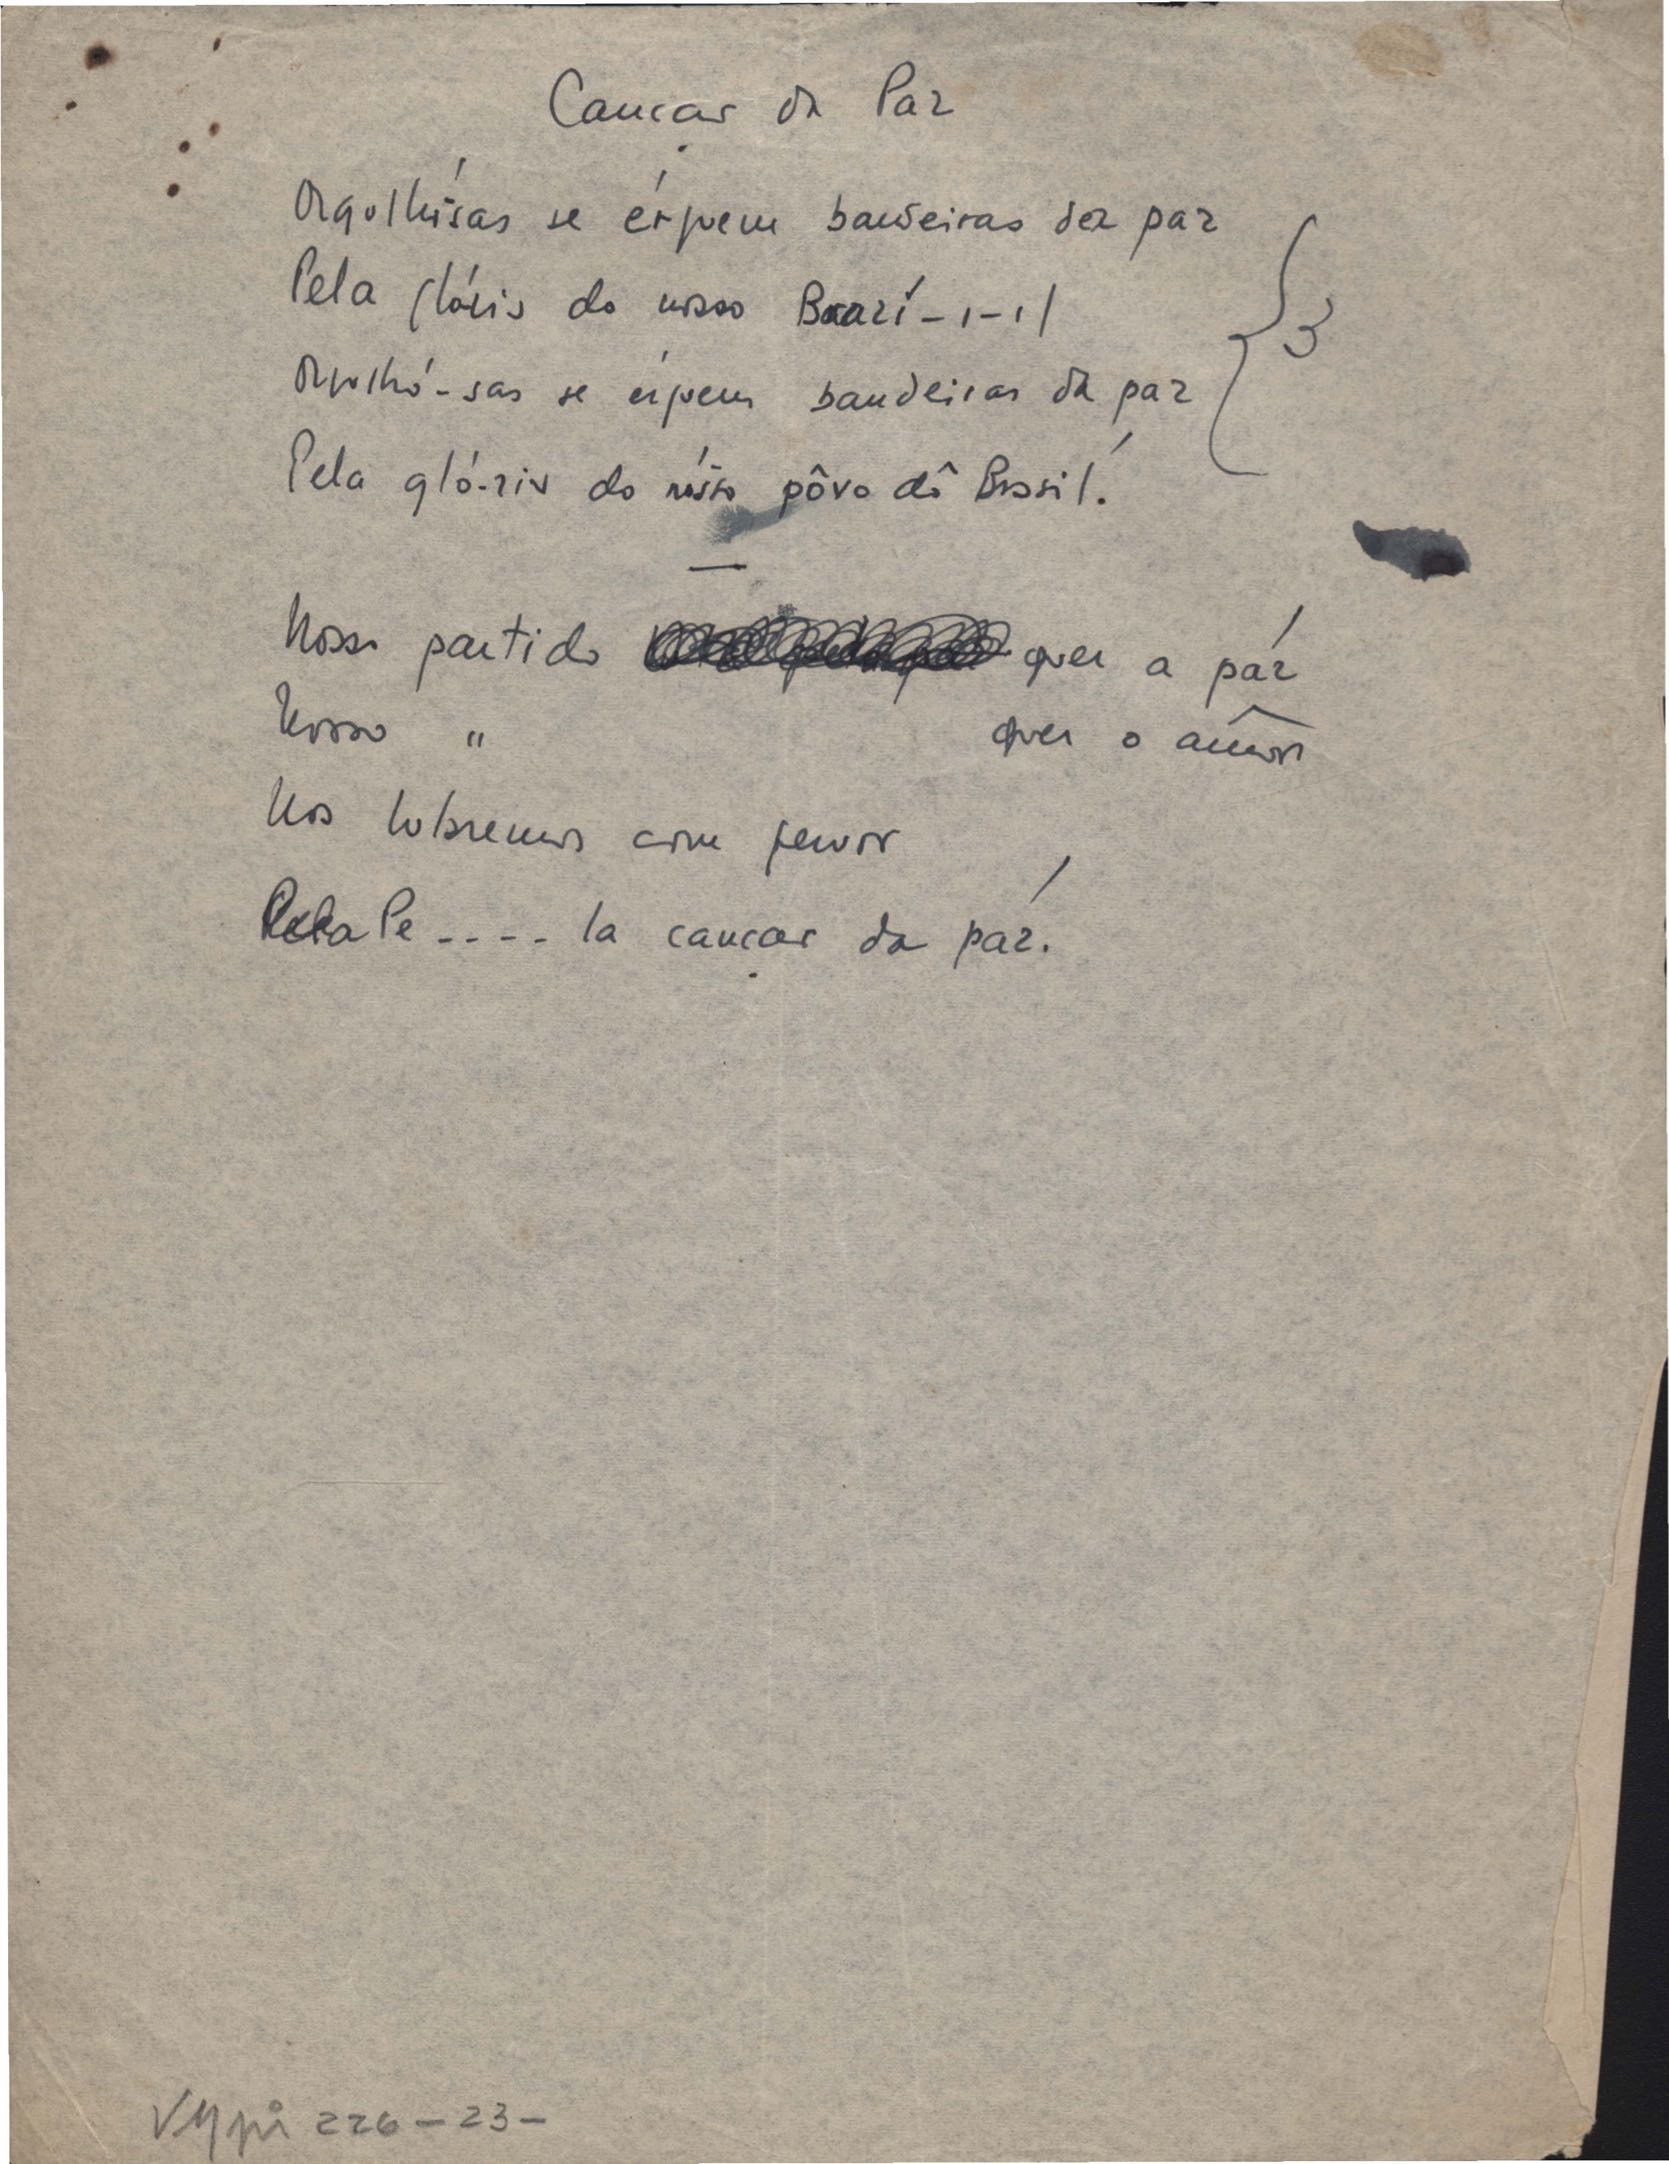 Cancão da Paz
Orgulhósas se érguem bandeiras da paz
Pela glória do nosso Brazí-i-il
Orgulhó-sas se érguem bandeiras da paz
Pela gló-ria do nósso pôvo dô Brasil.
3
Nosso partido quer a páz
Nosso " quer o amôr
Nos lutaremos com fervor
Pe----la cancão da páz.
VM pi 226-23-